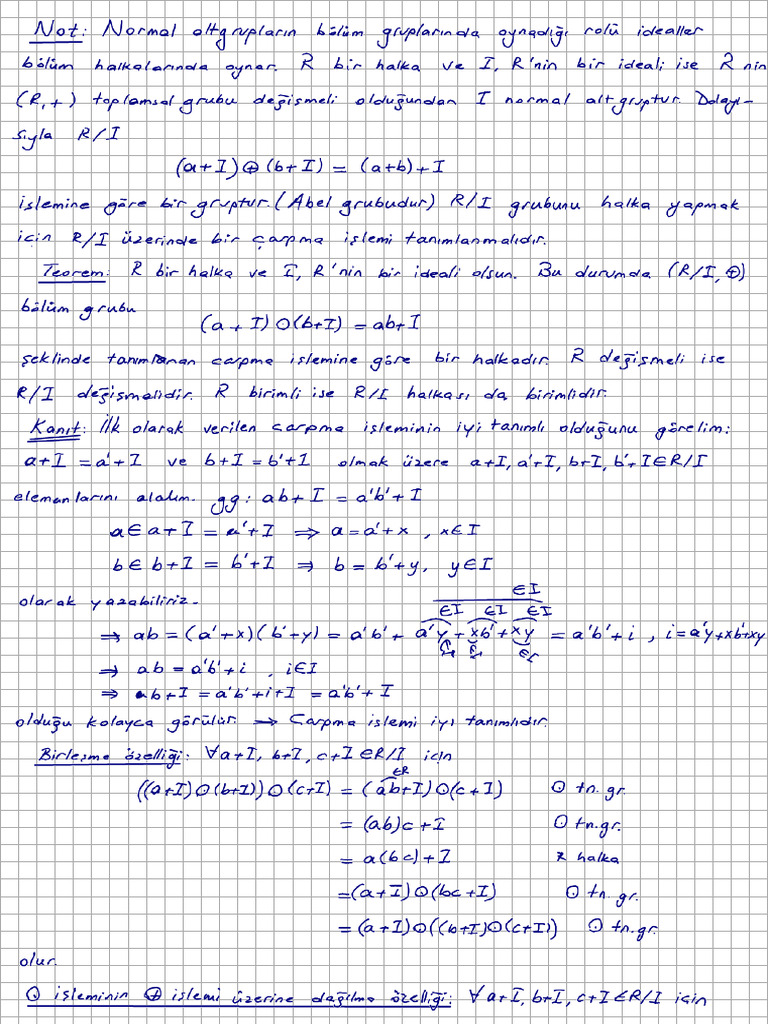 Not: Normal altgrupların bölüm gruplarında oynadığı rolü idealler
bölüm halkalarında oynar. R bir halka ve I, R'nin bir ideali ise R nin
(R,+) toplamsal grubu değişmeli olduğundan I normal altgruptur. Dolayı-
sıyla R/I
(a+I)⊕(b+I) = (a+b)+I
işlemine göre bir gruptur. (Abel grubudur) R/I grubunu halka yapmak
için R/I üzerinde bir çarpma işlemi tanımlanmalıdır.
Teorem: R bir halka ve I, R'nin bir ideali olsun. Bu durumda (R/I,⊕)
bölüm grubu
(a+I)⊙(b+I) = ab+I
şeklinde tanımlanan çarpma işlemine göre bir halkadır. R değişmeli ise
R/I değişmelidir. R birimli ise R/I halkası da birimlidir.
Kanıt: İlk olarak verilen çarpma işleminin iyi tanımlı olduğunu görelim:
a+I = a'+I ve b+I = b'+I olmak üzere a+I, a'+I, b+I, b'+I∈R/I
elemanlarını alalım. gg: ab+I = a'b'+I
a∈a+I = a'+I ⇒ a=a'+x , x∈I
b∈b+I = b'+I ⇒ b=b'+y, y∈I
∈I
olarak yazabiliriz. ∈I ∈I ∈I
⇒ ab=(a'+x)(b'+y) = a'b'+ a'y+xb'+xy = a'b'+i , i=a'y+xb'+xy
∈I ∈I ∈I
⇒ ab=a'b'+i , i∈I
⇒ ab+I = a'b'+i+I = a'b'+I
olduğu kolayca görülür. → Çarpma işlemi iyi tanımlıdır.
Birleşme özelliği: ∀a+I, b+I, c+I∈R/I için
∈R
((a+I)⊙(b+I))⊙(c+I) = (ab+I)⊙(c+I) ⊙ tn.gr.
= (ab)c+I ⊙ tn.gr.
= a(bc)+I R halka
= (a+I)⊙(bc+I) ⊙ tn.gr.
= (a+I)⊙((b+I)⊙(c+I)) ⊙ tn.gr.
olur.
⊙ işleminin ⊕ işlemi üzerine dağılma özelliği: ∀a+I, b+I, c+I∈R/I için